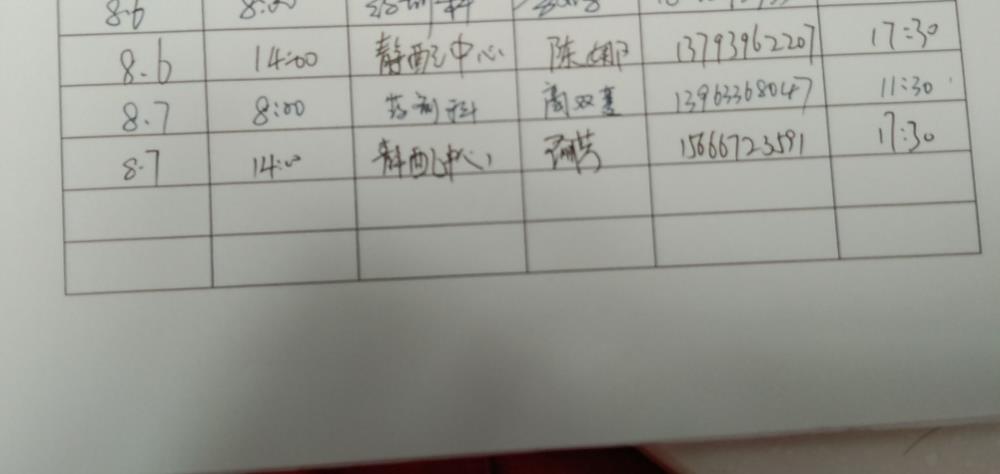 8.6 8:00
8.6 14:00 静配中心 陈娜 13793962207 17:30
8.7 8:00 药剂科 周双喜 13963368047 11:30
8.7 14:00 静配中心 15666723591 17:30